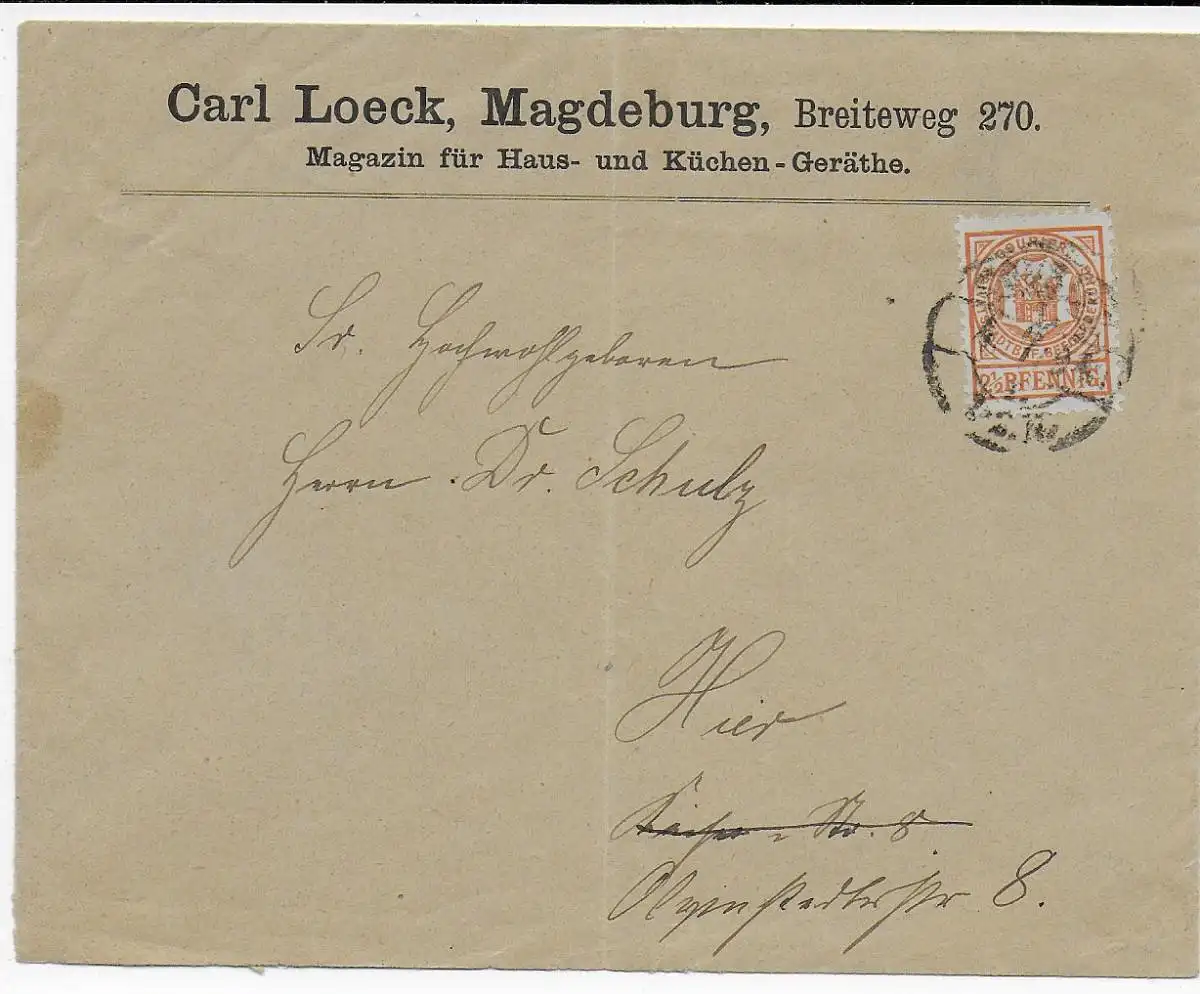 Carl Loeck, Magdeburg, Breiteweg 270.
Magazin für Haus- und Küchen-Geräthe.
COURIER
2½ PFENNIG.
Sr. Hochwohlgeboren
Herrn Dr. Schulz
Hier
Kaiser-Str. 8
Olvenstedterstr 8.